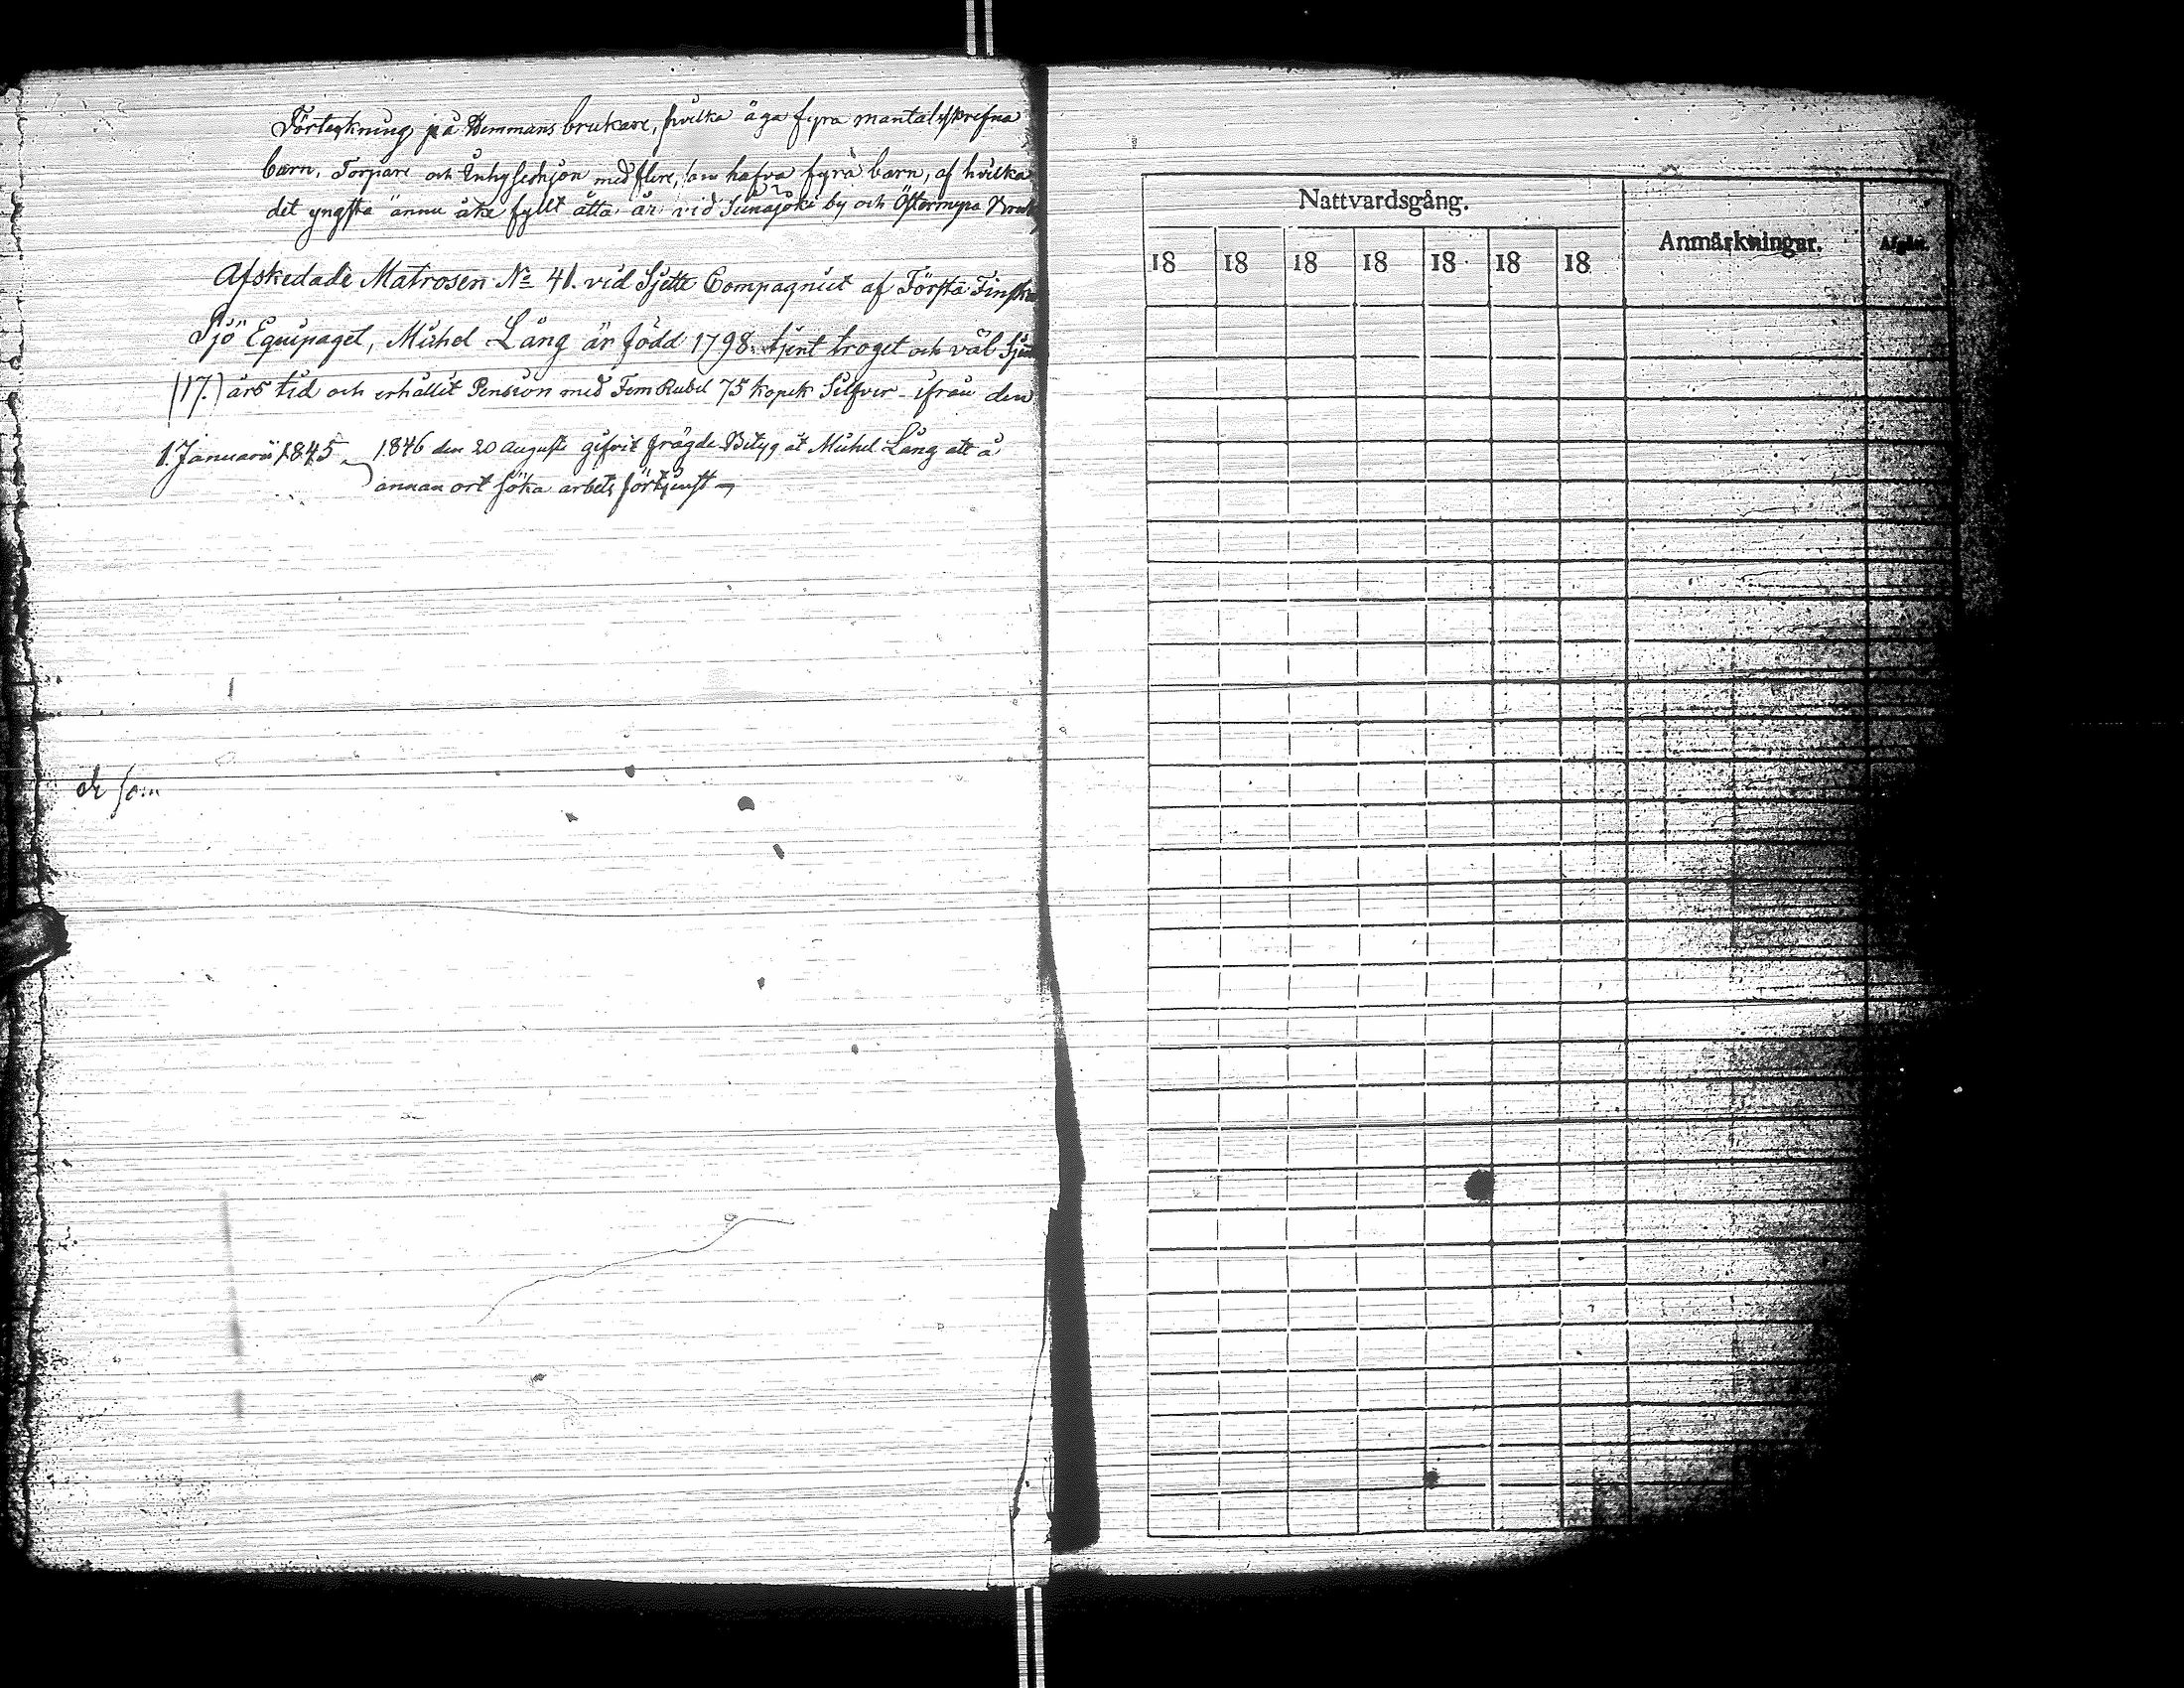 Förtekning på Hemmans brukare, hvilka äga fyra mantalsskrefna
barn, Torpare och Inhyseshjon med flere, som hafva fyra barn, af hvilka
det yngsta ännu icke fyllt åtta år vid Seinäjoki by och Östermyra Bruk
Afskedade Matrosen No 41. vid Sjette Compagniet af Första Finska
Sjö Equipaget, Michel Lång är född 1798. tjent troget och väl Sjutton
(17.) års tid och erhållit Pension med Fem Rubel 75 kopek Silfver ifrån den
1. Januarii 1845
1846 den 20 Augusti gifvit frägde Betyg åt Michel Lång att å
annan ort söka arbets förtjenst
som
Nattvardsgång.
Anmärkningar.
18 18 18 18 18 18 18